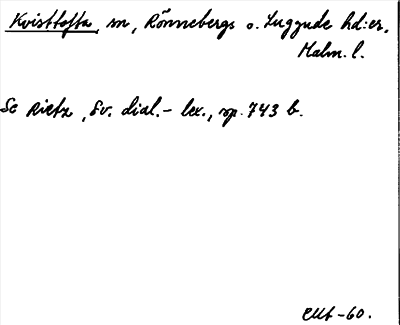 Kvisttofta, sn, Rönnebergs o. Luggude hd:er,
Malm. l.
Se Rietz, Sv. dial.- lex., sp. 743 b.
-60.